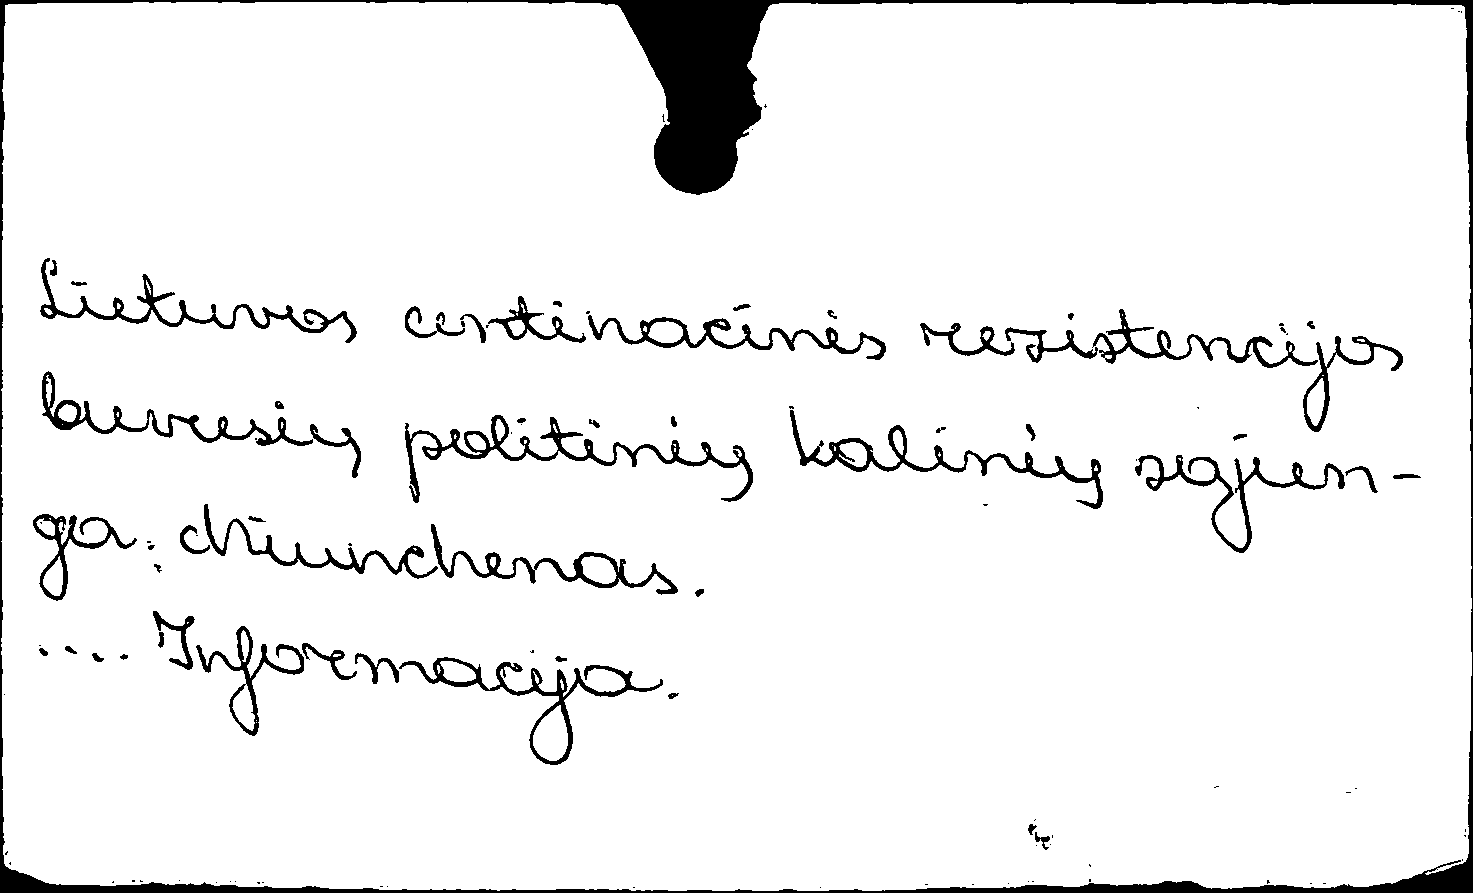 Lietuvos centinacinės rezistencijos
buvusių politinių kalinių sąjun-
ga. Miunchenas.
.... Informacija.